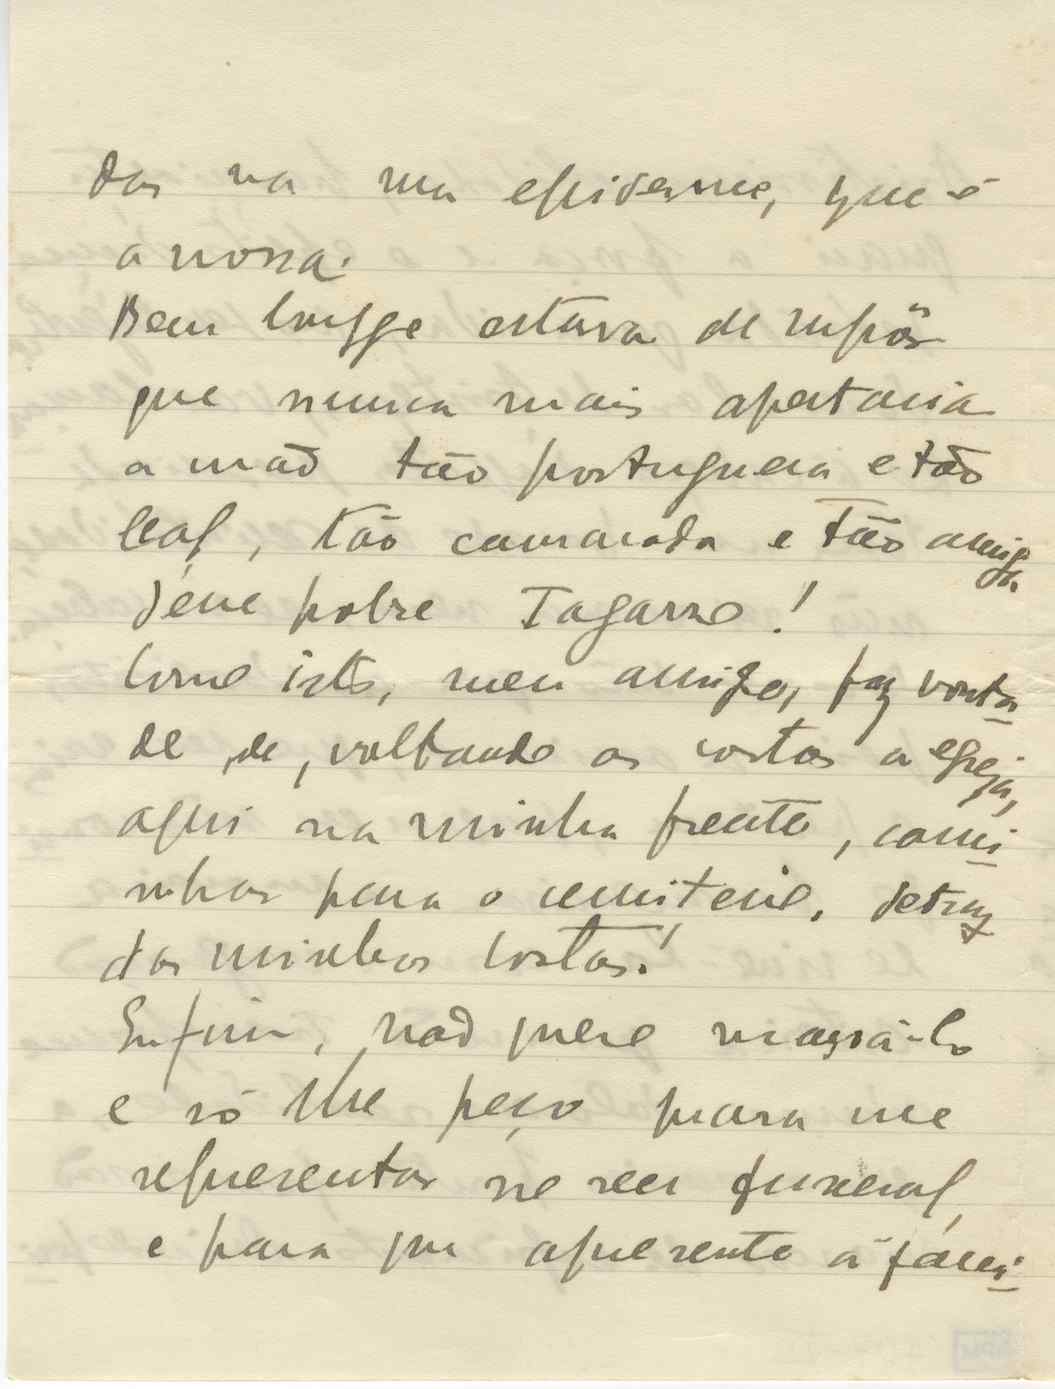 das na sua epiderme, que é
a nossa.
Bem longe estava de supôr
que nunca mais apertaria
a mão tão portuguesa e tão
leal, tão camarada e tão amiga
dêsse pobre Tagarro!
Como isto, meu amigo, faz vonta-
de, de, voltando as costas a egreja,
aqui na minha frente, cami-
nhar para o cemiterio, detraz
das minhas costas!
Enfim, não quero maçá-lo
e só lhe peço para me
representar no seu funeral,
e para que apresente á fami-